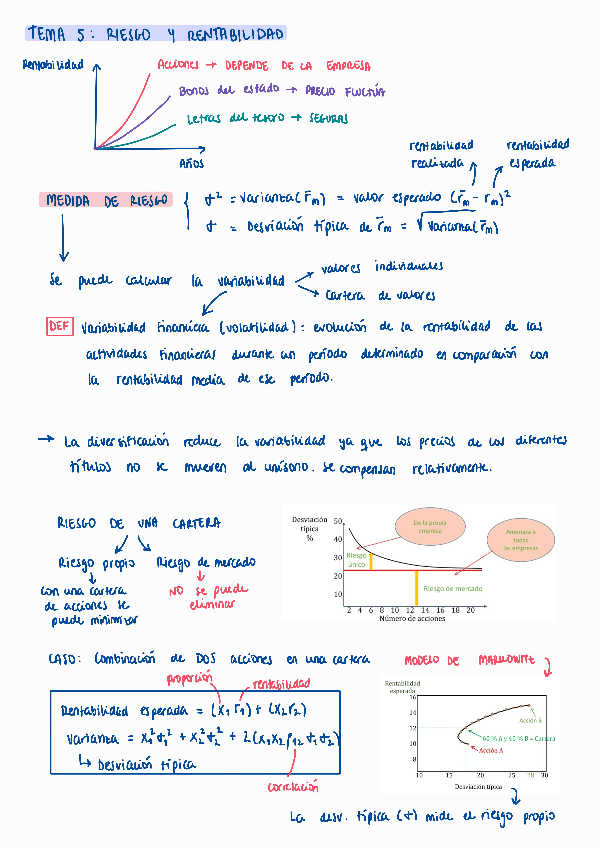 TEMA 5: RIESGO Y RENTABILIDAD
Rentabilidad
ACCIONES → DEPENDE DE LA EMPRESA
Bonos del estado → PRECIO FLUCTÚA
Letras del tesoro → SEGURAS
AÑOS
rentabilidad realizada
rentabilidad esperada
MEDIDA DE RIESGO
σ² = Varianza(r̃m) = valor esperado (r̃m - rm)²
σ = Desviación típica de r̃m = √Varianza(r̃m)
Se puede calcular la variabilidad
valores individuales
Cartera de valores
DEF Variabilidad Financiera (volatilidad): evolución de la rentabilidad de las
actividades financieras durante un período determinado en comparación con
la rentabilidad media de ese período.
→ La diversificación reduce la variabilidad ya que los precios de los diferentes
títulos no se mueven al unísono. Se compensan relativamente.
RIESGO DE UNA CARTERA
Riesgo propio
Riesgo de mercado
con una cartera
de acciones se
puede minimizar
NO se puede
eliminar
Desviación
típica
%
50
40
30
20
10
De la propia
empresa
Amenaza a
todas
las empresas
Riesgo
único
Riesgo de mercado
2 4 6 8 10 12 14 16 18 20
Número de acciones
CASO: Combinación de DOS acciones en una cartera
MODELO DE MARKOWITZ
proporción
rentabilidad
Rentabilidad esperada = (x₁ r₁) + (x₂ r₂)
Varianza = x₁²σ₁² + x₂²σ₂² + 2(x₁x₂ρ₁₂σ₁σ₂)
↳ Desviación típica
correlación
Rentabilidad
esperada
16
14
12
10
8
Acción B
60 % A y 40 % B = Cartera
Acción A
10 15 20 25 28 30
Desviación típica
La desv. típica (σ) mide el riesgo propio